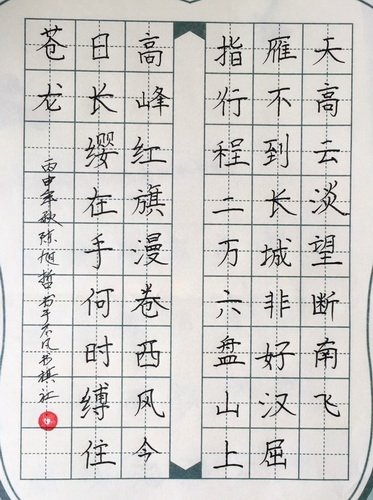 天高云淡望断南飞
雁不到长城非好汉屈
指行程二万六盘山上
高峰红旗漫卷西风今
日长缨在手何时缚住
苍龙
丙申年秋陈旭哲书于不凡书棋社